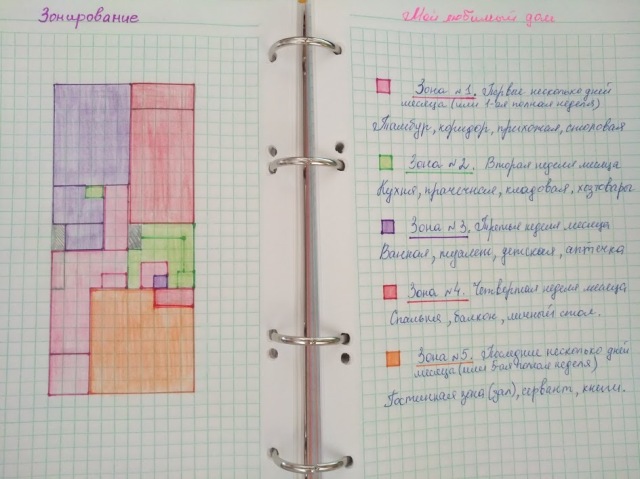 Зонирование
Мой любимый дом
Зона №1. Первые несколько дней
месяца (или 1-ая полная неделя)
Тамбур, коридор, прихожая, столовая
Зона №2. Вторая неделя месяца
Кухня, прачечная, кладовая, хозтовары
Зона №3. Третья неделя месяца
Ванная, туалет, детская, аптечка
Зона №4. Четвертая неделя месяца
Спальня, балкон, личный стол.
Зона №5. Последние несколько дней
месяца (или 5-ая полная неделя)
Гостинная зона (зал), сервант, книги.